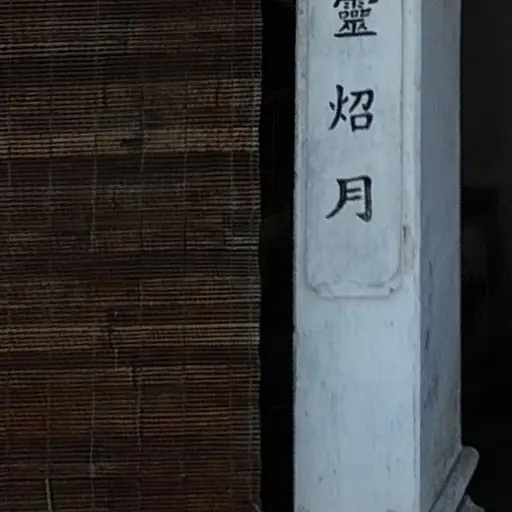 靈炤月